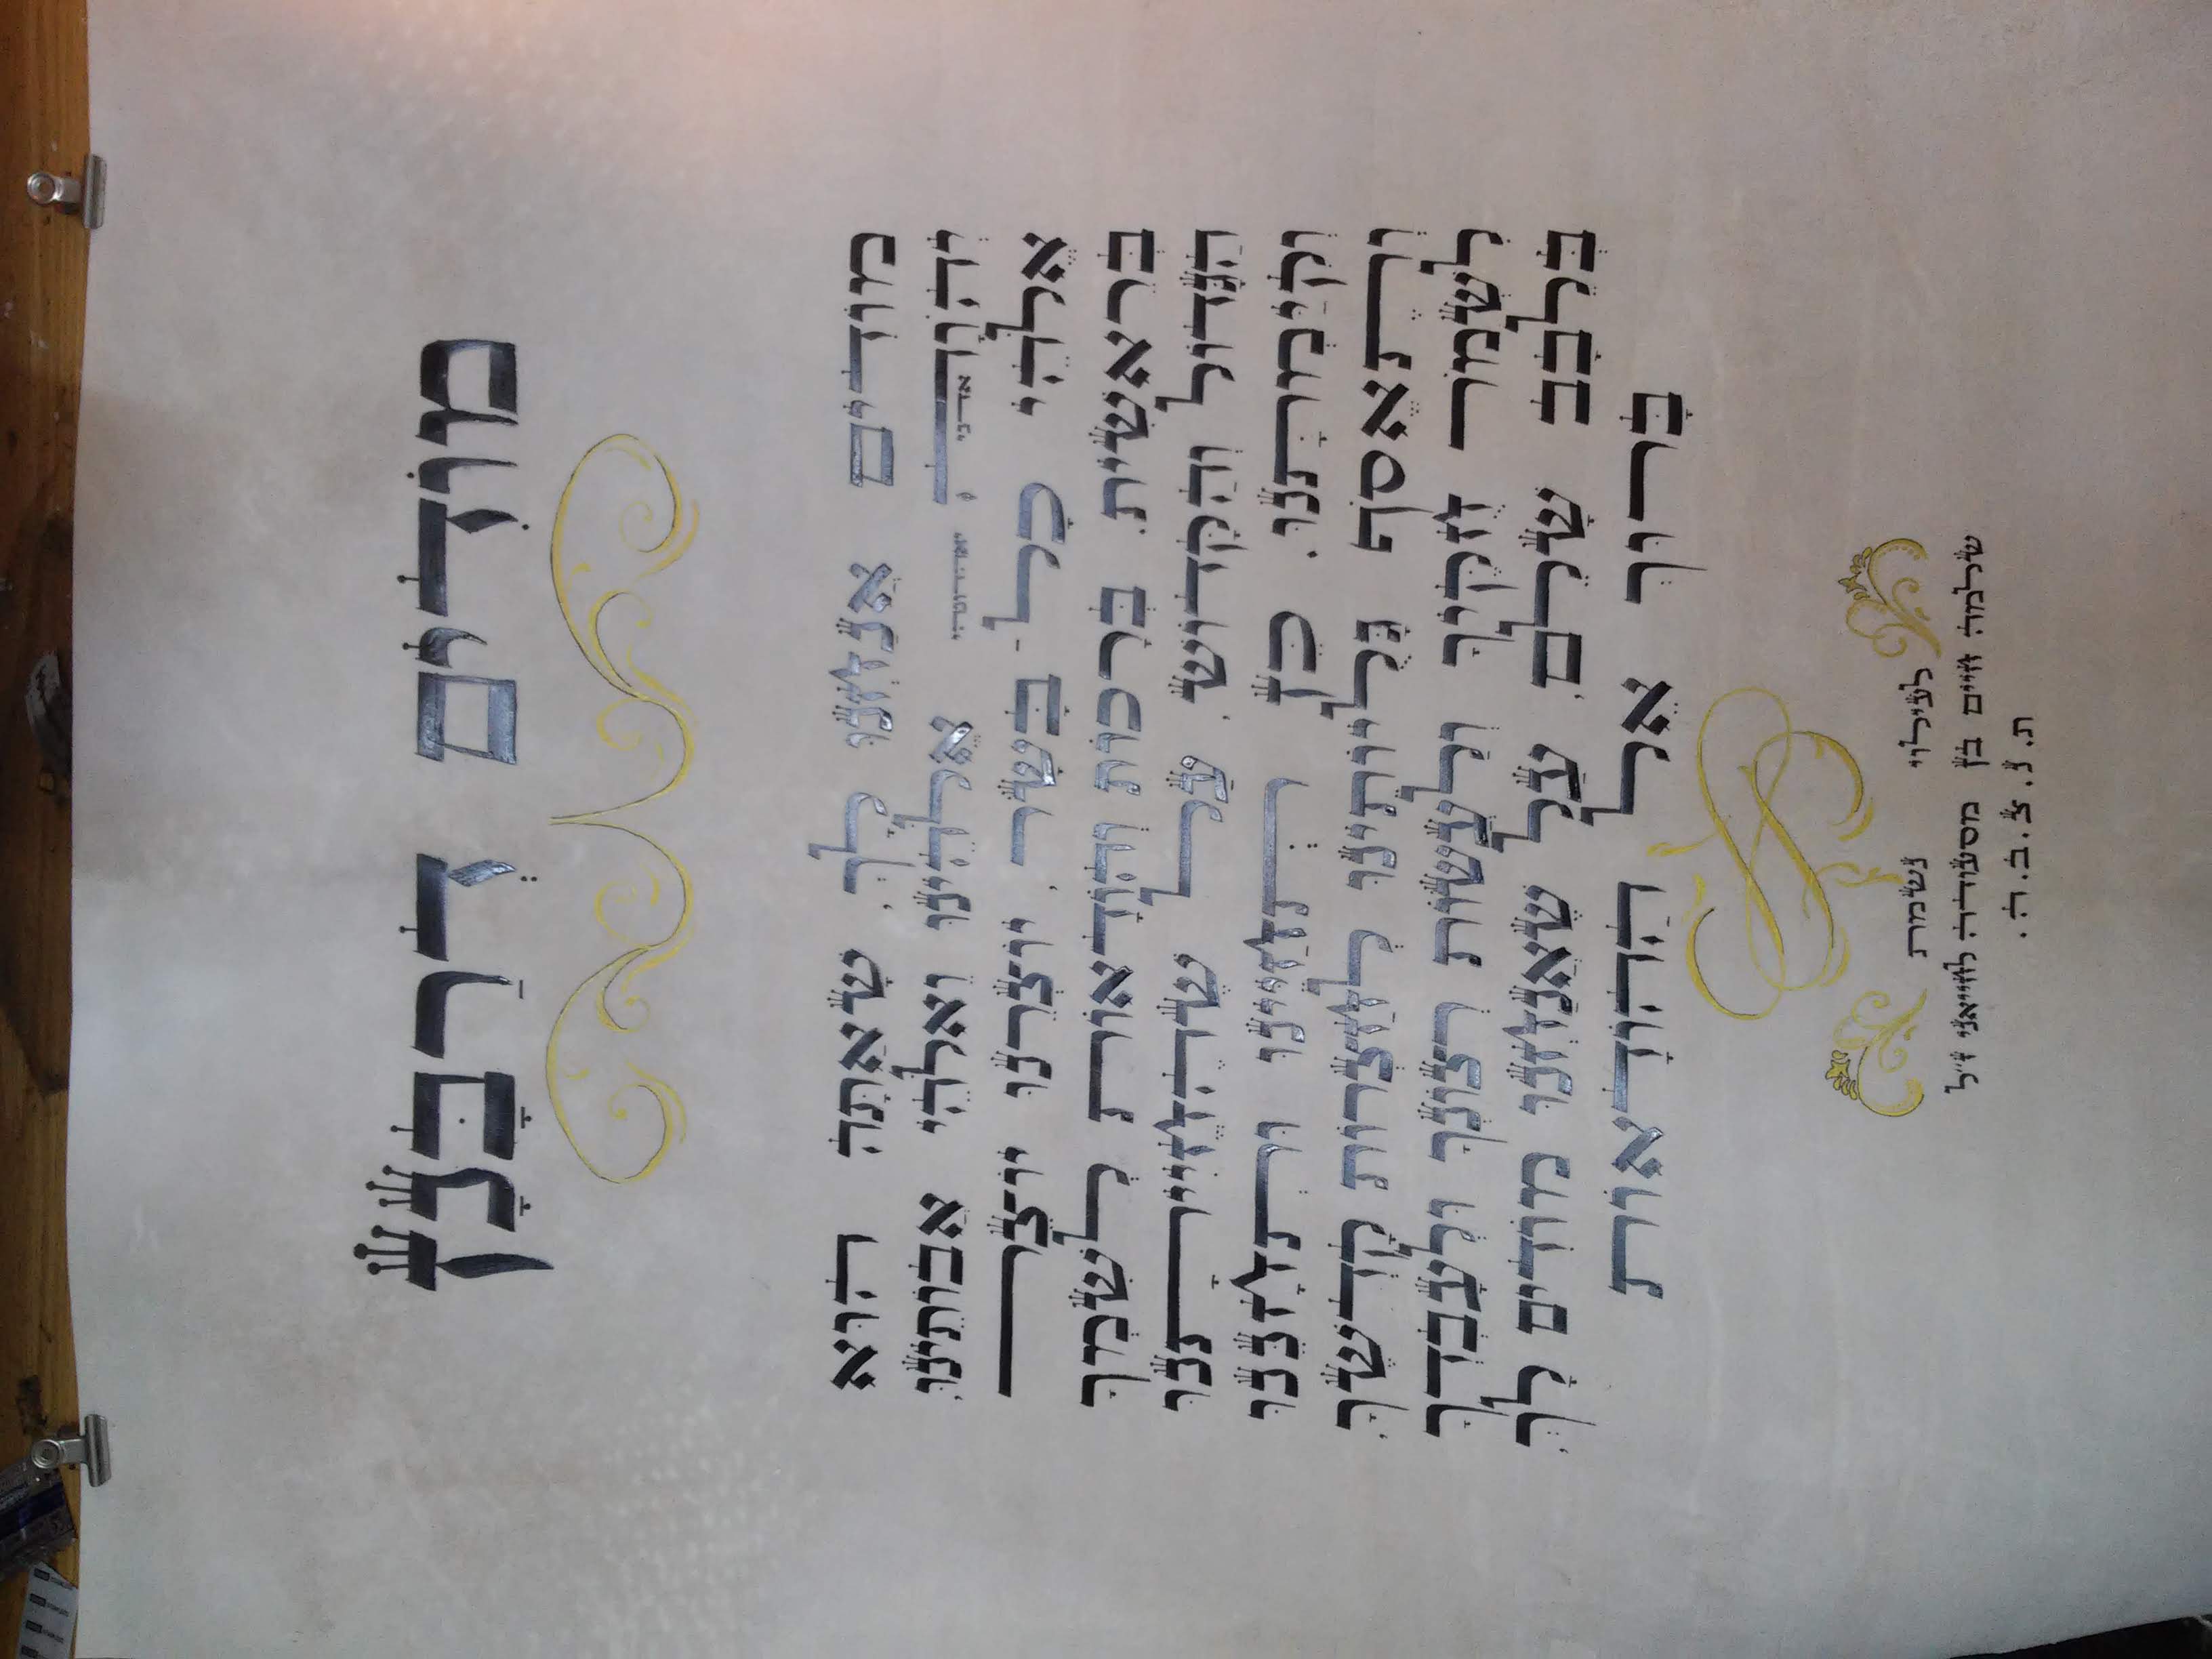 מוֹדִים דְרַבָּנָן
מוֹדִים אֲנַחְנוּ לָךְ, שָׁאַתָּה הוּא
יְהֹוָה אדני יאהדונהי אֱלֹהֵינוּ וֵאלֹהֵי אֲבוֹתֵינוּ,
אֱלֹהֵי כָל־ בָּשָׂר, יוֹצְרֵנוּ יוֹצֵר
בְּרֵאשִׁית. בְּרָכוֹת וְהוֹדָאוֹת לְשִׁמְךָ
הַגָּדוֹל וְהַקָּדוֹשׁ, עַל שֶׁהֶחֱיִיתָנוּ
וְקִיַּמְתָנוּ. כֵּן תְּחַיֵּינוּ וּתְחָנֵּנוּ
וְתֶאֱסֹף גָּלֻיוֹתֵינוּ לְחַצְרוֹת קָדְשֶׁךָ,
לִשְׁמֹר חֻקֶּיךָ וְלַעֲשׂוֹת רְצוֹנְךָ וּלְעָבְדְךָ
בְּלֵבָב שָׁלֵם, עַל שֶׁאֲנַחְנוּ מוֹדִים לָךְ,
בָּרוּךְ אֵל הַהוֹדָאוֹת
לעילוי נשמת
שלמה חיים בן מסעודה לחייאני ז״ל
ת.נ.צ.ב.ה.